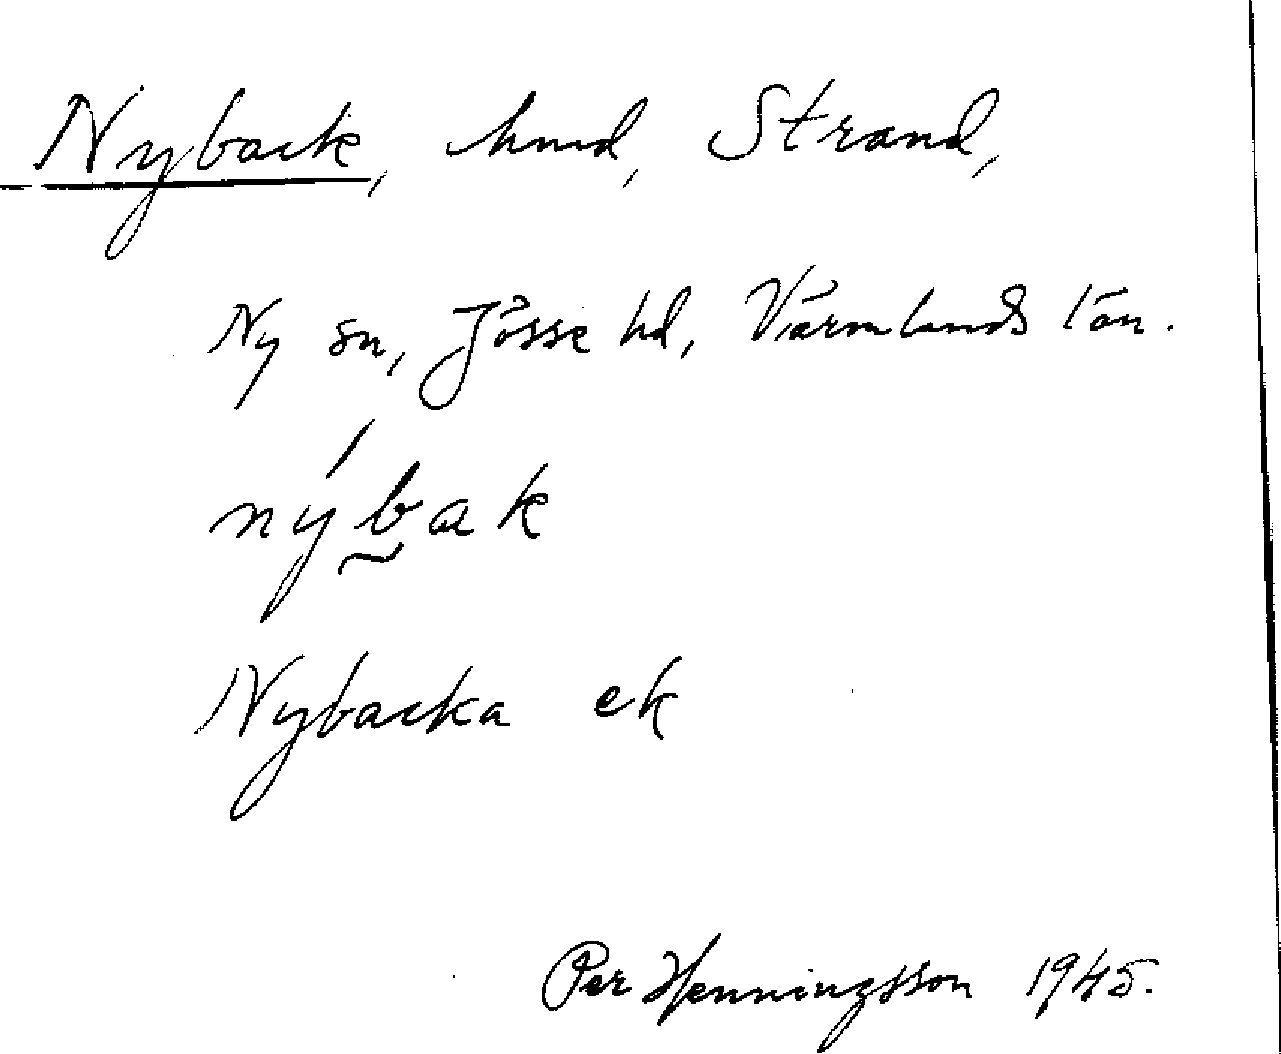 Nyback, hmd, Strand,
Ny sn, Jösse hd, Värmlands län.
nýbak
Nybacka ek
Per Henningsson 1945.